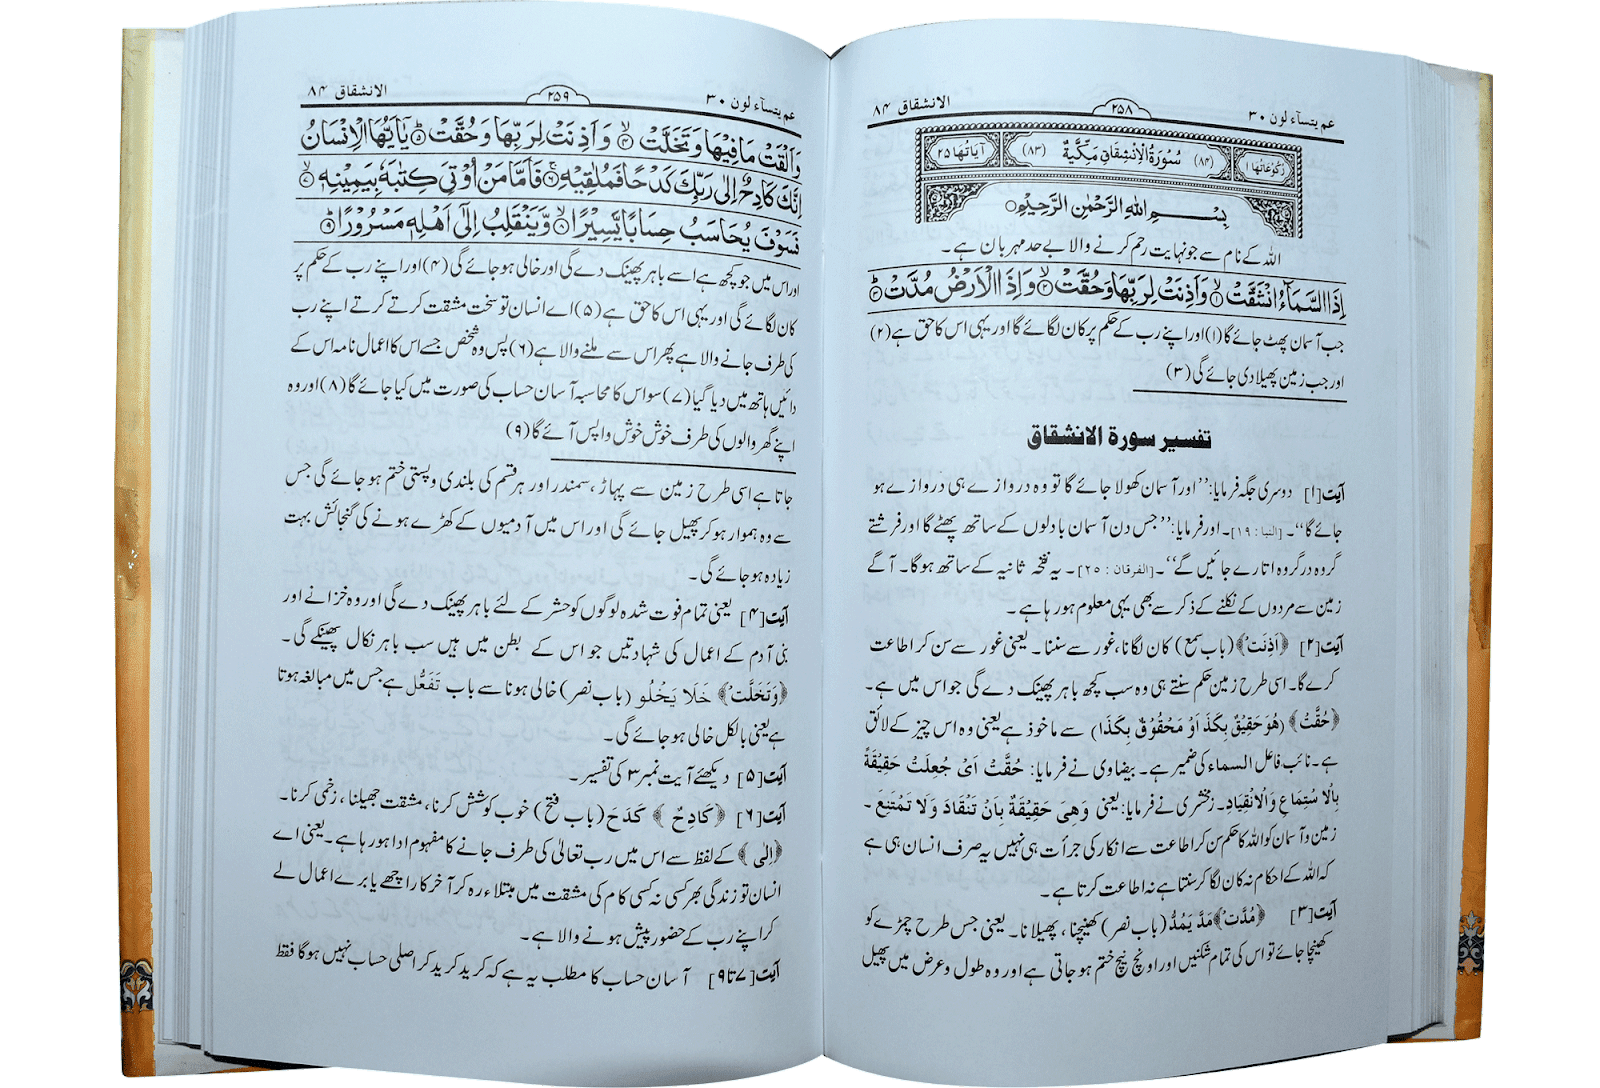 عم یتسآء لون ۳۰
۲۵۸
الانشقاق ۸۴
رُكُوعَاتُهَا ۱
(۸۴) سُوْرَةُ الْاِنْشِقَاقِ مَكِّيَّةٌ (۸۳)
اٰيَاتُهَا ۲۵
بِسْمِ اللهِ الرَّحْمٰنِ الرَّحِيْمِ
اللہ کے نام سے جو نہایت رحم کرنے والا بے حد مہربان ہے۔
اِذَا السَّمَآءُ انْشَقَّتْ ۙ۱ وَاَذِنَتْ لِرَبِّهَا وَحُقَّتْ ۙ۲ وَاِذَا الْاَرْضُ مُدَّتْ ۙ۳
جب آسمان پھٹ جائے گا (۱) اور اپنے رب کے حکم پر کان لگائے گا اور یہی اس کا حق ہے (۲)
اور جب زمین پھیلا دی جائے گی (۳)
تفسیر سورة الانشقاق
آیت[۱] دوسری جگہ فرمایا: ’’اور آسمان کھولا جائے گا تو وہ دروازے ہی دروازے ہو
جائے گا‘‘۔ [النبا : ۱۹]۔ اور فرمایا: ’’جس دن آسمان بادلوں کے ساتھ پھٹے گا اور فرشتے
گروہ در گروہ اتارے جائیں گے‘‘۔ [الفرقان : ۲۵]۔ یہ نفخہ ثانیہ کے ساتھ ہوگا۔ آگے
زمین سے مردوں کے نکلنے کے ذکر سے بھی یہی معلوم ہو رہا ہے۔
آیت[۲] ﴿اَذِنَتْ﴾ (باب سمع) کان لگانا، غور سے سننا۔ یعنی غور سے سن کر اطاعت
کرے گا۔ اسی طرح زمین حکم سنتے ہی وہ سب کچھ باہر پھینک دے گی جو اس میں ہے۔
﴿حُقَّتْ﴾ (هُوَ حَقِيْقٌ بِكَذَا اَوْ مَحْقُوْقٌ بِكَذَا) سے ماخوذ ہے یعنی وہ اس چیز کے لائق
ہے۔ نائب فاعل السماء کی ضمیر ہے۔ بیضاوی نے فرمایا: حُقَّتْ اَىْ جُعِلَتْ حَقِيْقَةً
بِالْاِسْتِمَاعِ وَالْاِنْقِيَادِ۔ زمخشری نے فرمایا: یعنی وَهِىَ حَقِيْقَةٌ بِاَنْ تَنْقَادَ وَلَا تَمْتَنِعَ۔
زمین و آسمان کو اللہ کا حکم سن کر اطاعت سے انکار کی جرأت ہی نہیں یہ صرف انسان ہی ہے
کہ اللہ کے احکام نہ کان لگا کر سنتا ہے نہ اطاعت کرتا ہے۔
آیت[۳] ﴿مُدَّتْ﴾ مَدَّ يَمُدُّ (باب نصر) کھینچنا، پھیلانا۔ یعنی جس طرح چمڑے کو
کھینچا جائے تو اس کی تمام شکنیں اور اونچ نیچ ختم ہو جاتی ہے اور وہ طول و عرض میں پھیل
عم یتسآء لون ۳۰
۲۵۹
الانشقاق ۸۴
وَاَلْقَتْ مَا فِيْهَا وَتَخَلَّتْ ۙ۴ وَاَذِنَتْ لِرَبِّهَا وَحُقَّتْ ۵ يٰٓاَيُّهَا الْاِنْسَانُ
اِنَّكَ كَادِحٌ اِلٰى رَبِّكَ كَدْحًا فَمُلٰقِيْهِ ۶ فَاَمَّا مَنْ اُوْتِيَ كِتٰبَهٗ بِيَمِيْنِهٖ ۙ۷
فَسَوْفَ يُحَاسَبُ حِسَابًا يَّسِيْرًا ۙ۸ وَّيَنْقَلِبُ اِلٰٓى اَهْلِهٖ مَسْرُوْرًا ۹
اور اس میں جو کچھ ہے اسے باہر پھینک دے گی اور خالی ہو جائے گی (۴) اور اپنے رب کے حکم پر
کان لگائے گی اور یہی اس کا حق ہے (۵) اے انسان تو سخت مشقت کرتے کرتے اپنے رب
کی طرف جانے والا ہے پھر اس سے ملنے والا ہے (۶) پس وہ شخص جسے اس کا اعمال نامہ اس کے
دائیں ہاتھ میں دیا گیا (۷) سو اس کا محاسبہ آسان حساب کی صورت میں کیا جائے گا (۸) اور وہ
اپنے گھر والوں کی طرف خوش خوش واپس آئے گا (۹)
جاتا ہے اسی طرح زمین سے پہاڑ، سمندر اور ہر قسم کی بلندی و پستی ختم ہو جائے گی جس
سے وہ ہموار ہو کر پھیل جائے گی اور اس میں آدمیوں کے کھڑے ہونے کی گنجائش بہت
زیادہ ہو جائے گی۔
آیت[۴] یعنی تمام فوت شدہ لوگوں کو حشر کے لئے باہر پھینک دے گی اور وہ خزانے اور
بنی آدم کے اعمال کی شہادتیں جو اس کے بطن میں ہیں سب باہر نکال پھینکے گی۔
﴿وَتَخَلَّتْ﴾ خَلَا يَخْلُو (باب نصر) خالی ہونا سے باب تَفَعُّل ہے جس میں مبالغہ ہوتا
ہے یعنی بالکل خالی ہو جائے گی۔
آیت[۵] دیکھئے آیت نمبر ۳ کی تفسیر۔
آیت[۶] ﴿كَادِحٌ﴾ كَدَحَ (باب فتح) خوب کوشش کرنا، مشقت جھیلنا، زخمی کرنا۔
﴿اِلٰى﴾ کے لفظ سے اس میں رب تعالیٰ کی طرف جانے کا مفہوم ادا ہو رہا ہے۔ یعنی اے
انسان تو زندگی بھر کسی نہ کسی کام کی مشقت میں مبتلاء رہ کر آخر کار اچھے یا برے اعمال لے
کر اپنے رب کے حضور پیش ہونے والا ہے۔
آیت[۷ تا ۹] آسان حساب کا مطلب یہ ہے کہ کرید کرید کر اصلی حساب نہیں ہوگا فقط